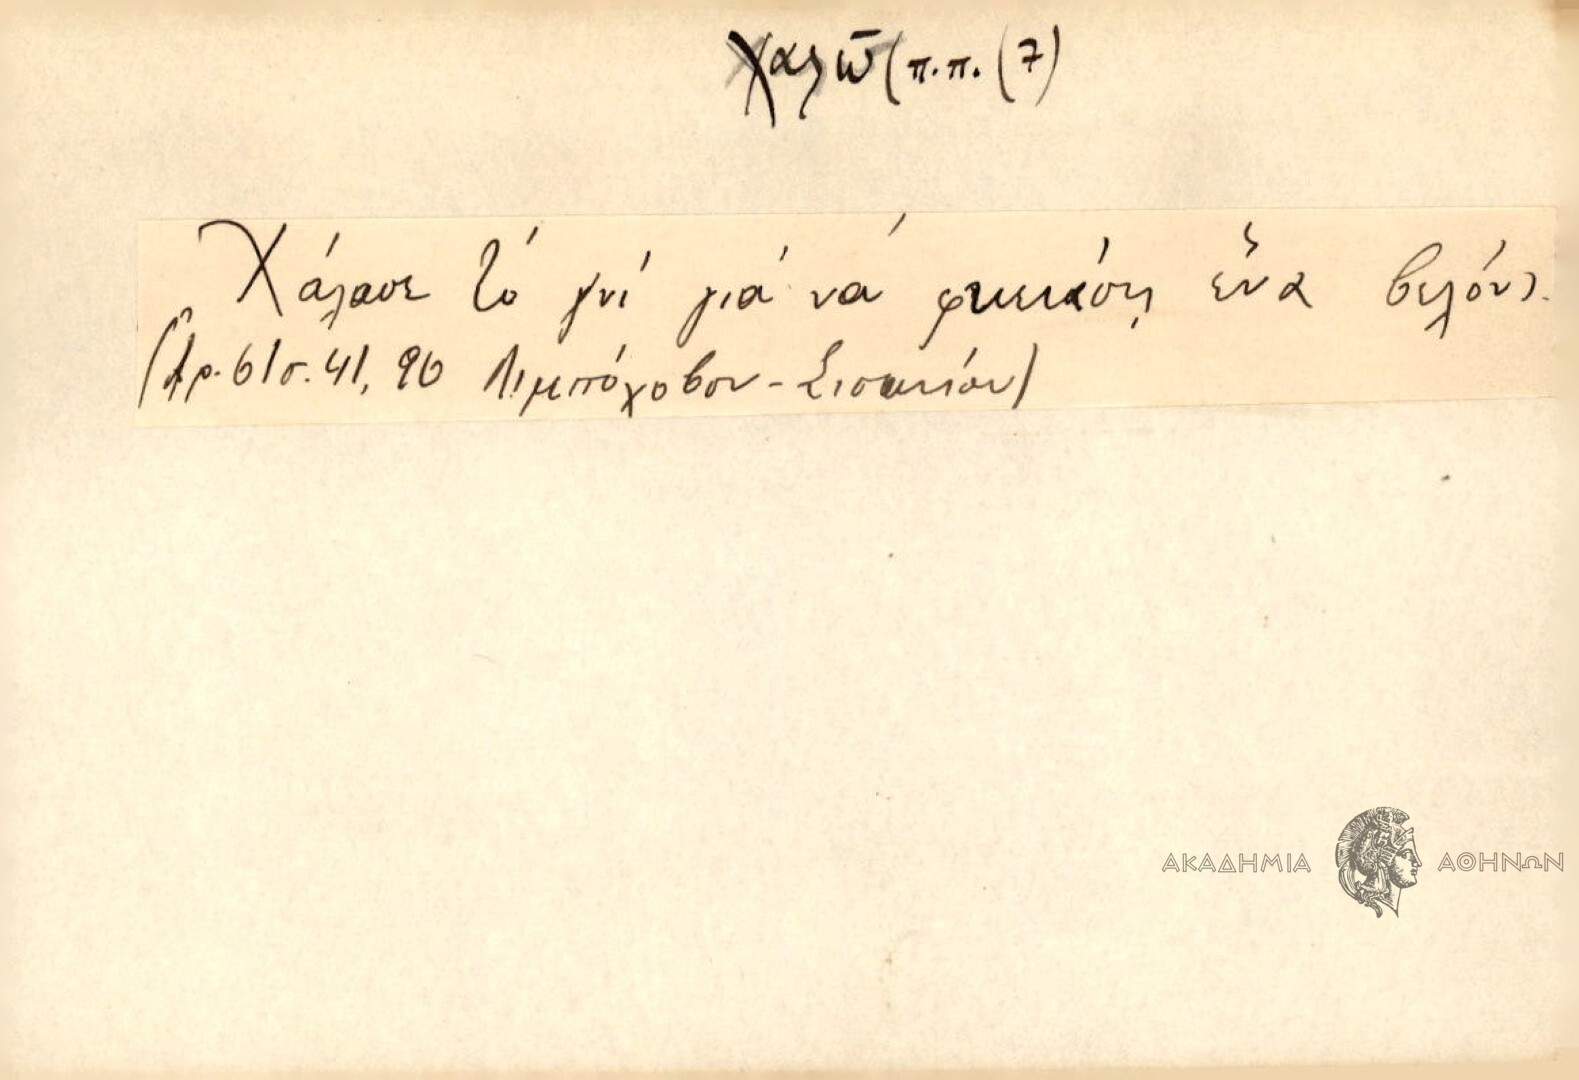 Χαλῶ (π.π. (7)
Χάλασε τὸ γνί γιά νά φκειάσῃ ἕνα βελόνι.
(Ἀρ. 61 σ. 41, 90 Λιμπόχοβον - Σισανίου)
ΑΚΑΔΗΜΙΑ ΑΘΗΝΩΝ